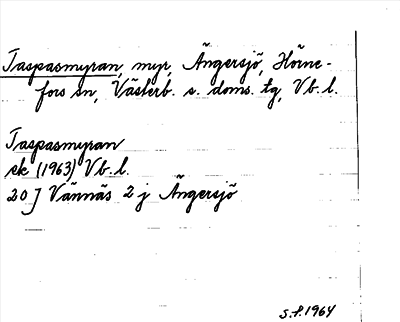 Taspasmyran, myr, Ängersjö, Hörne-
fors sn, Västerb. s. doms. tg, Vb. l.
Taspasmyran
ek (1963) Vb. l.
20 J Vännäs 2 j Ängersjö
S.P. 1964